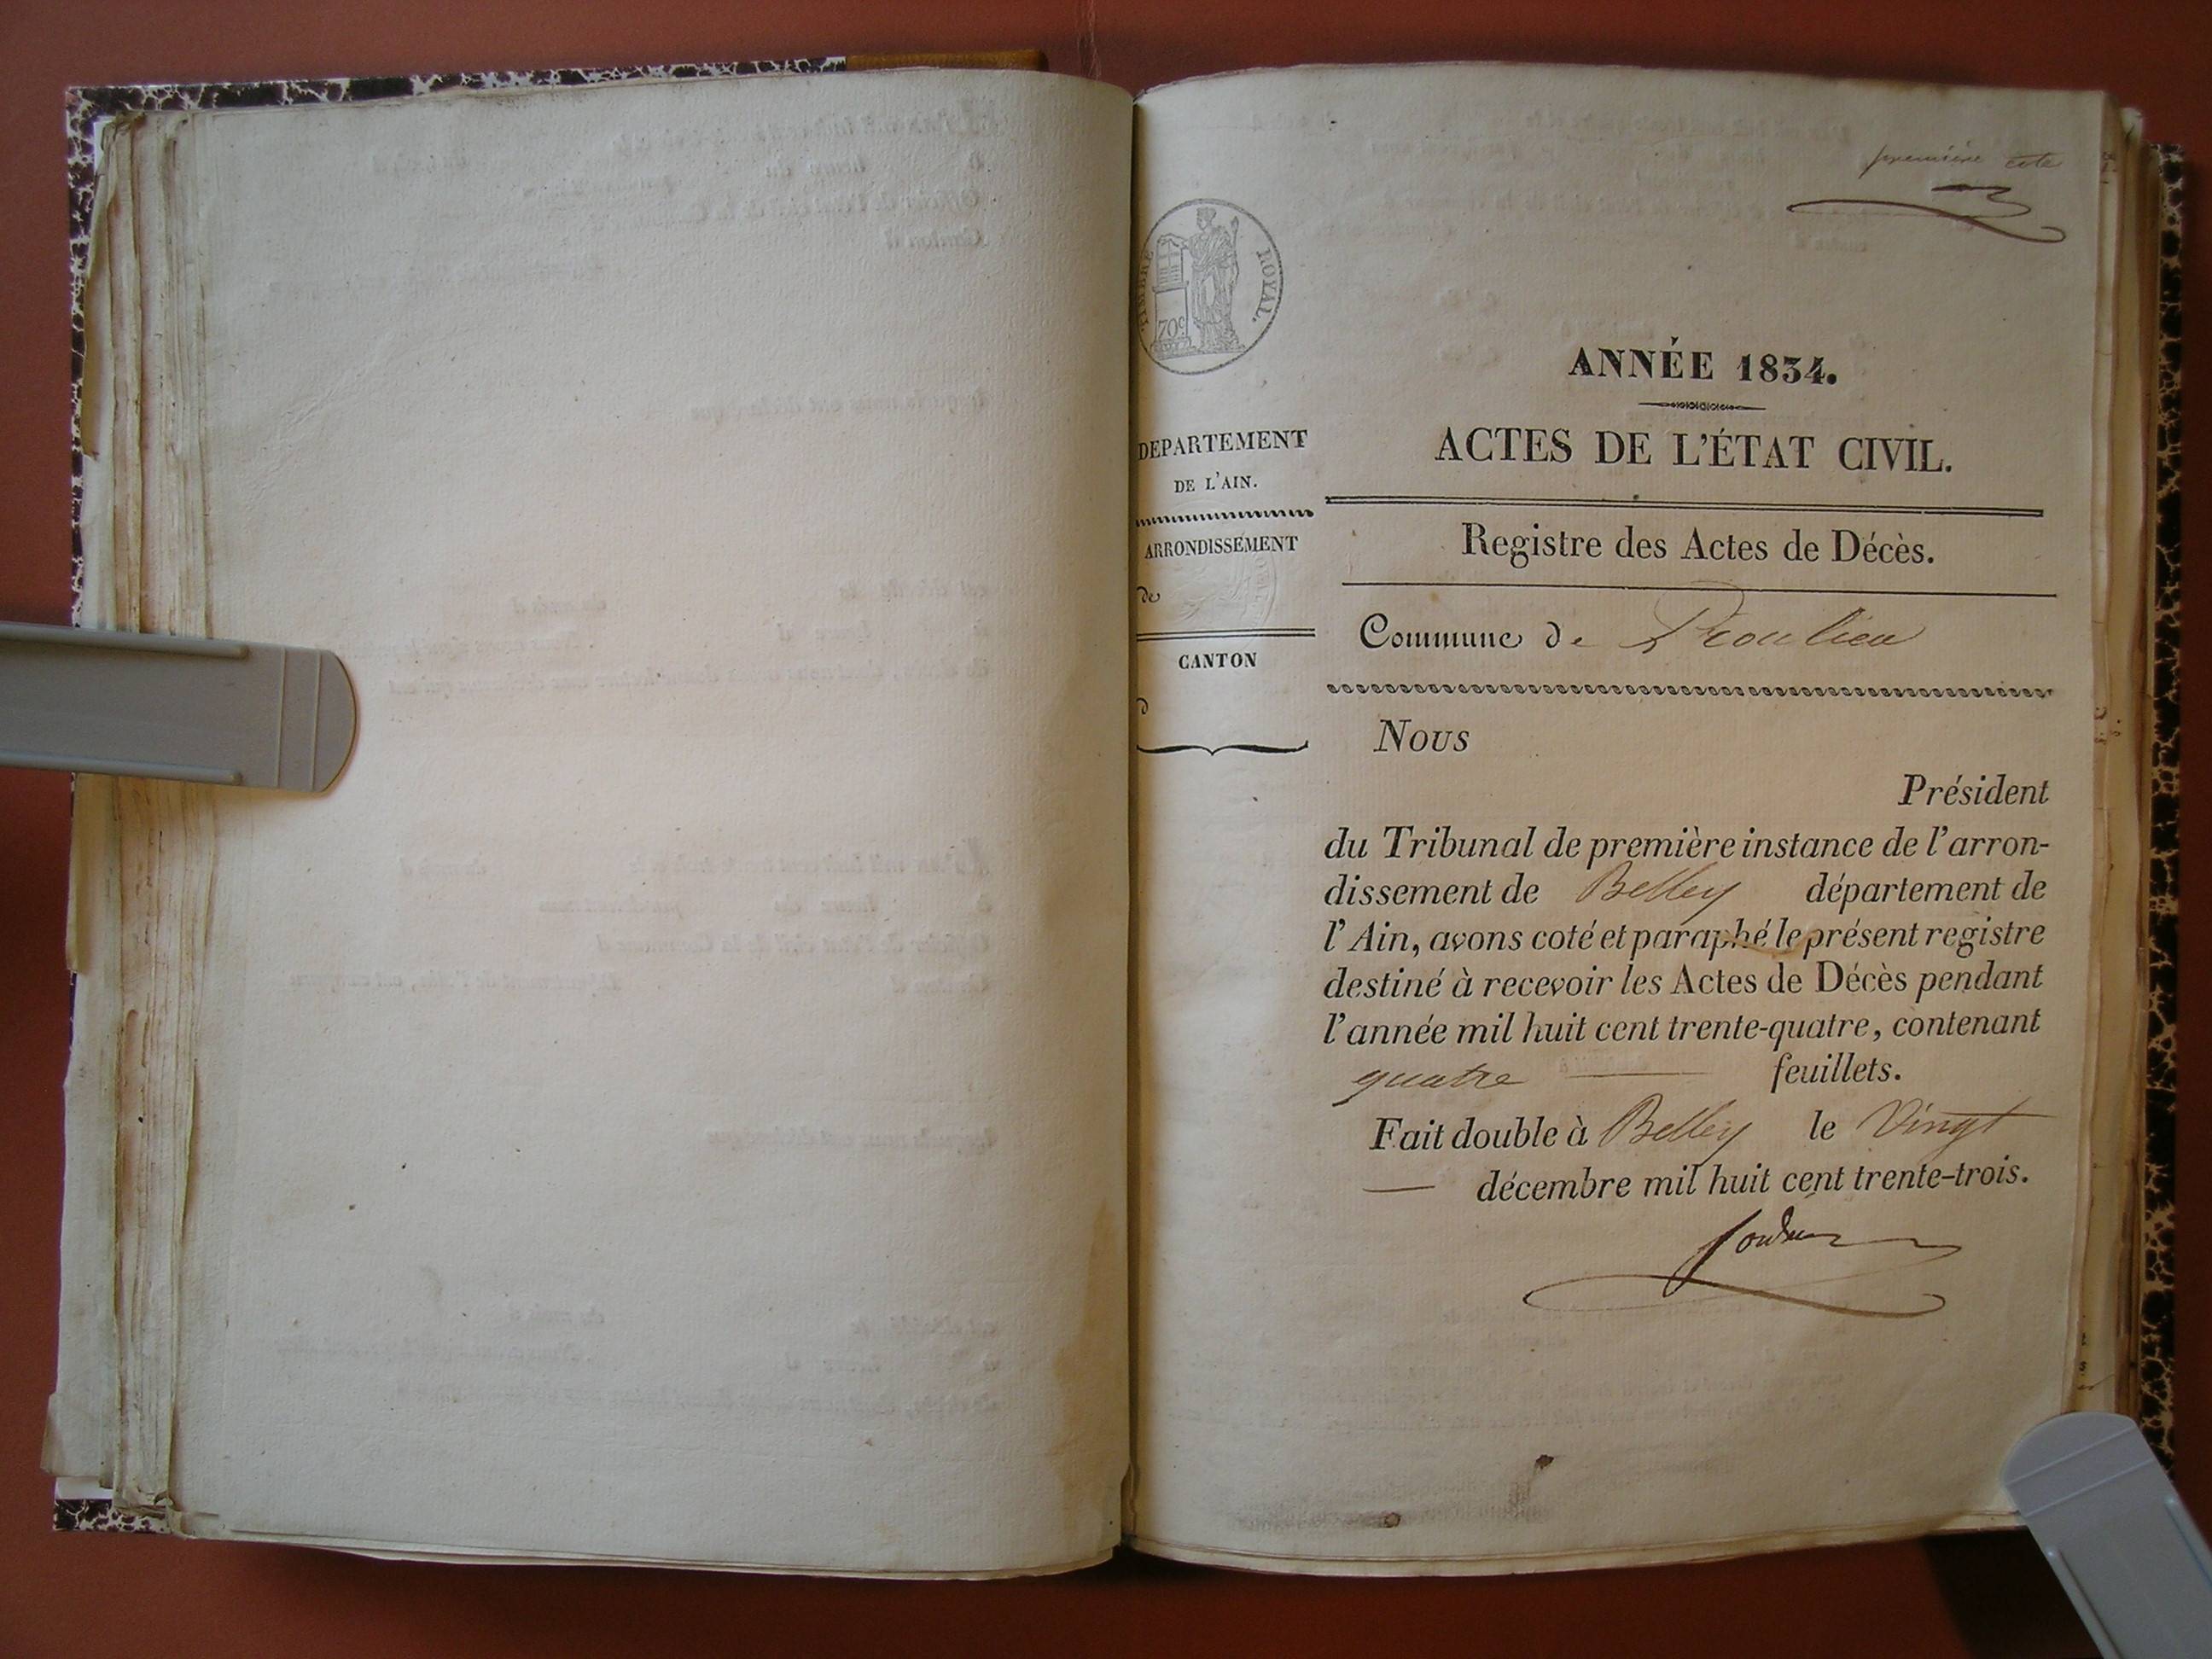 première cote
TIMBRE ROYAL.
70c
ANNÉE 1834.
ACTES DE L'ÉTAT CIVIL.
DEPARTEMENT
DE L'AIN.
ARRONDISSEMENT
de
CANTON
d
Registre des Actes de Décès.
Commune de Proulieu
Nous
Président
du Tribunal de première instance de l'arron-
dissement de Belley département de
l'Ain, avons coté et paraphé le présent registre
destiné à recevoir les Actes de Décès pendant
l'année mil huit cent trente-quatre, contenant
quatre — feuillets.
Fait double à Belley le Vingt
— décembre mil huit cent trente-trois.